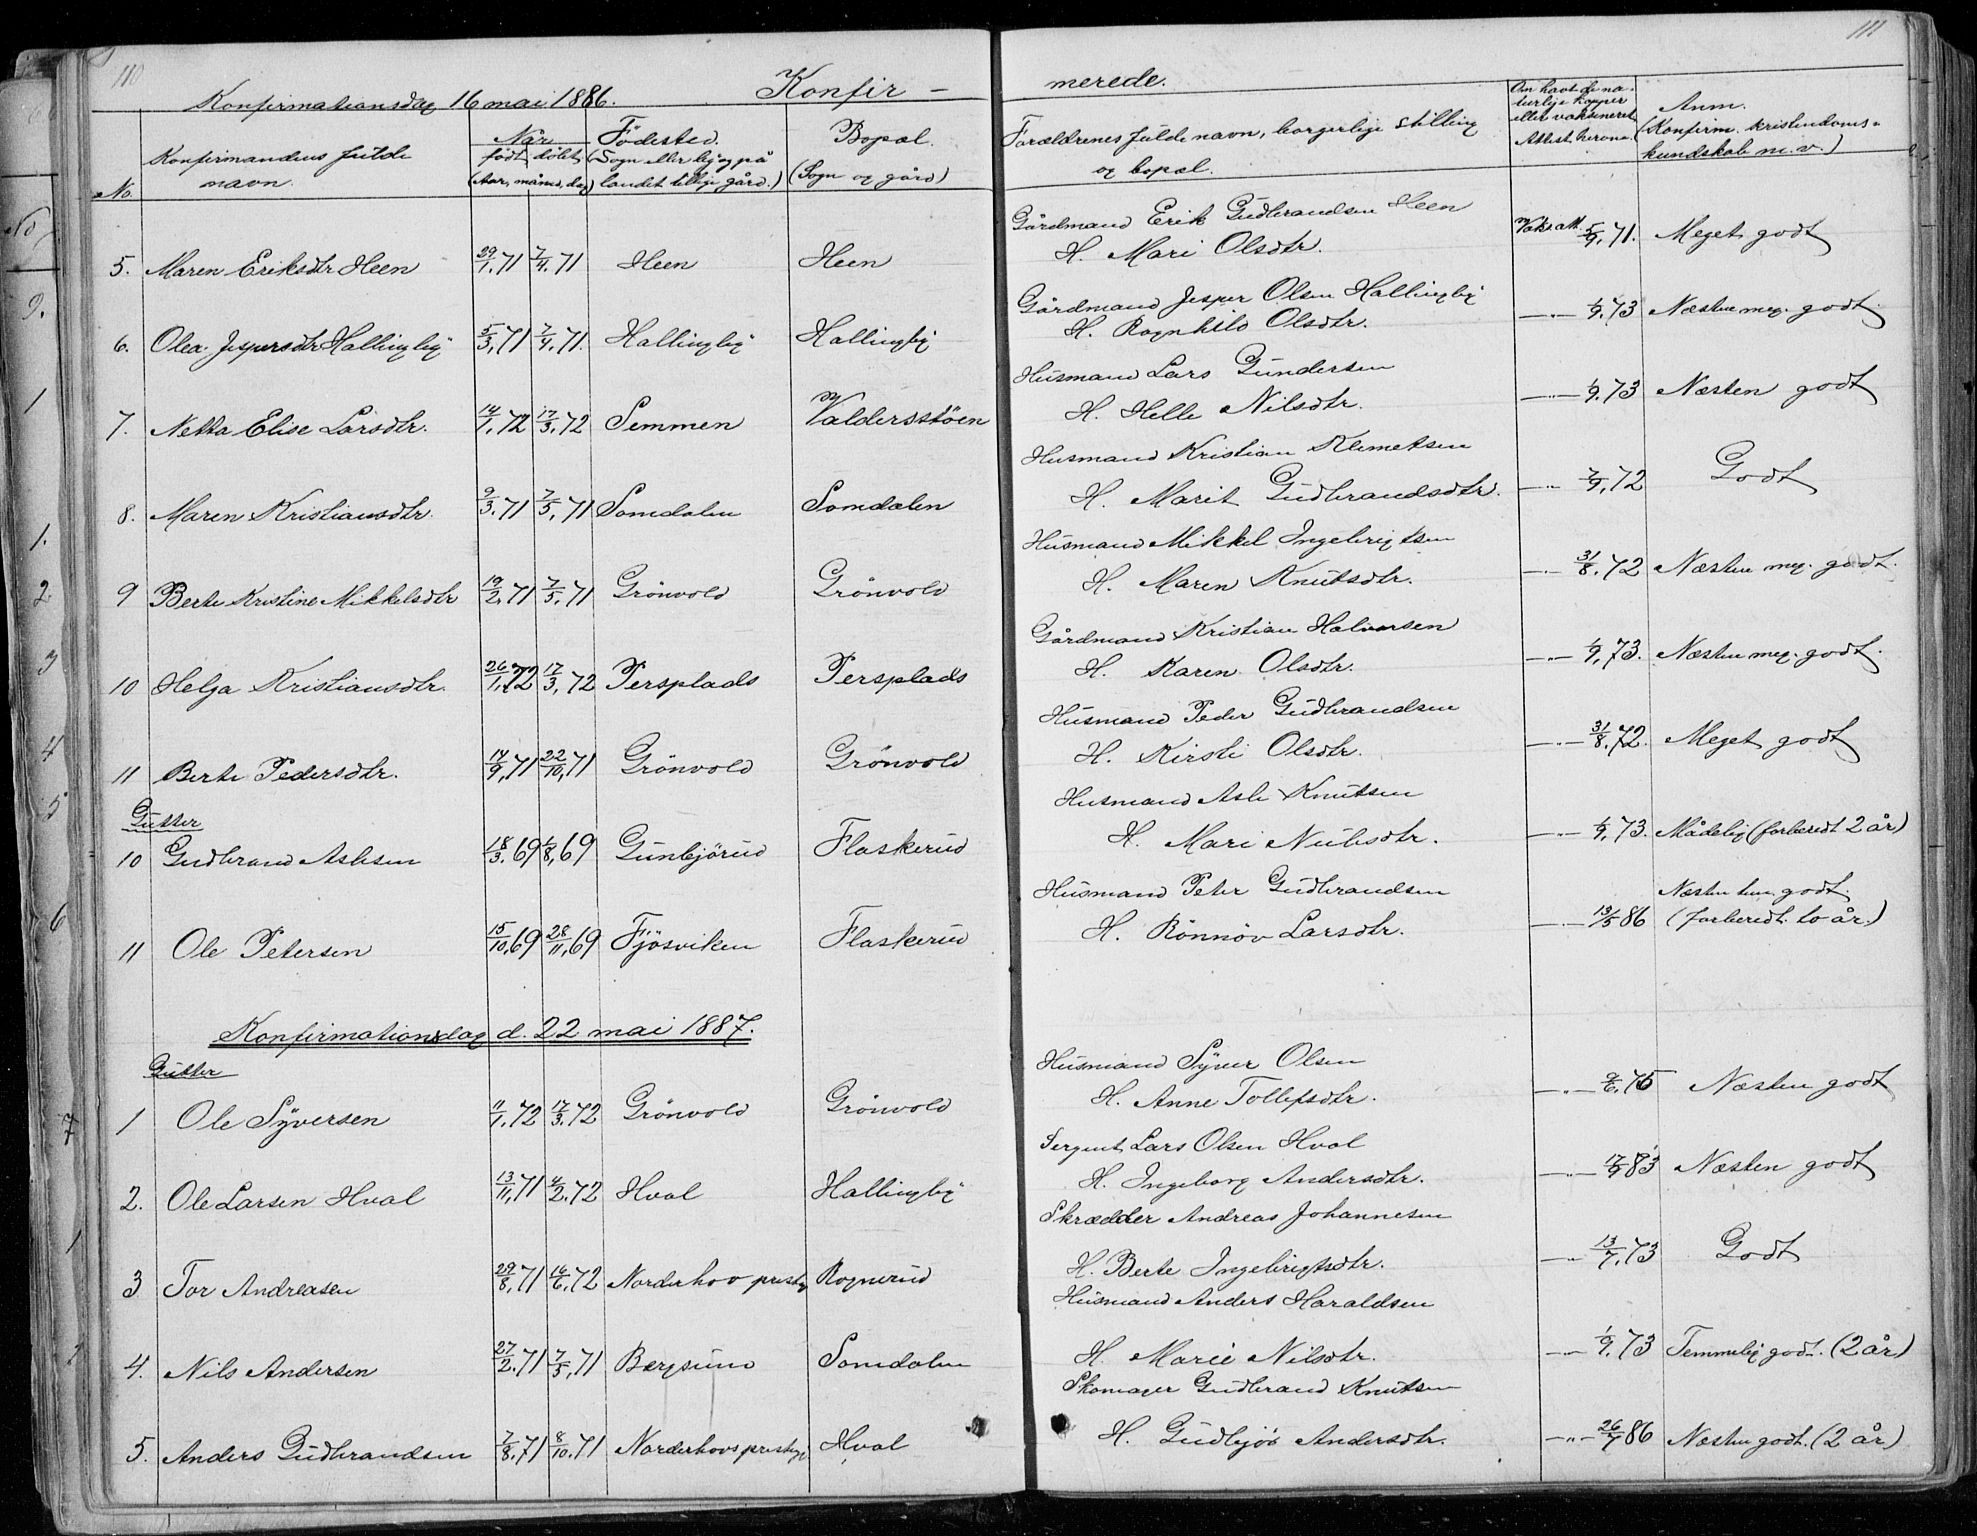 110
111
Konfirmationsdag 16 mai 1886.
Konfir - merede.
No.
Konfirmandens fulde navn.
Når
født, døbt,
(Aar, måned, dag)
Födested.
(Sogn eller by og på
landet tillige gård.)
Bopæl.
(Sogn og gård)
Forældrenes fulde navn, borgerlige stilling
og bopæl.
Om havt de na-
turlige kopper
eller vaksineret
Attest herom.
Anm.
(Konfirm. kristendoms-
kundskab m.v.)
Gårdmand Erik Gudbrandsen Heen
5. Maren Eriksdtr Heen 29/1,71 7/4,71 Heen Heen H. Mari Olsdtr. Vaks.att. 5/9,71. Meget godt
Gårdmand Jesper Olsen Hallingby
6. Olea Jespersdtr Hallingby 5/3,71 7/4,71. Hallingby Hallingby H. Ragnhild Olsdtr. —"— 1/9,73 Næsten meg. godt.
Husmand Lars Gundersen
7. Netta Elise Larsdtr. 14/1,72 17/3,72 Semmen Valdersstöen H. Helle Nilsdtr. —"— 1/9,73 Næsten godt
Husmand Kristian Klemetsen
8. Maren Kristiansdtr. 9/3,71 7/5,71 Somdalen Somdalen H. Marit Gudbrandsdtr. —"— 7/9,72 Godt
Husmand Mikkel Ingebrigtsen
9 Berte Kristine Mikkelsdtr 19/2,71 7/5,71 Grönvold Grönvold H. Maren Knutsdtr. —"— 31/8,72 Næsten meg. godt.
Gårdmand Kristian Halvorsen
10 Helga Kristiansdtr. 26/1,72 17/3,72 Persplads Persplads H. Karen Olsdtr. —"— 1/9,73. Næsten meg. godt.
Husmand Peder Gudbrandsen
11 Berte Pedersdtr. 14/9,71 22/10,71 Grönvold Grönvold H. Kirsti Olsdtr. —"— 31/8,72. Meget godt
Gutter
Husmand Asle Knutsen
10 Gudbrand Aslesen 18/3,69 1/8,69 Gunbjörud Flaskerud H. Mari Nubsdtr. —"— 1/9,73. Mådelig (forberedt 2 år)
Husmand Peter Gudbrandsen
Næsten godt.
11 Ole Petersen 15/10,69 28/11,69 Fjösviken Flaskerud H. Rönnöv Larsdtr. —"— 13/5 86 (forberedt to år.)
Konfirmationsdag d. 22 mai 1887.
Gutter
Husmand Syver Olsen
1 Ole Syversen 11/1,72 17/3,72 Grönvold Grönvold H. Anne Tollefsdtr. —"— 9/6,75 Næsten godt
Sergeant Lars Olsen Hval
2. Ole Larsen Hval 13/11,71 4/2,72 Hval Hallingby H. Ingeborg Andersdtr. —"— 17/9 83 Næsten godt
Skrædder Andreas Johannesen
3 Tor Andreasen 29/8,71 16/6,72 Norderhov prestg Rognerud H. Berte Ingebrigtsdtr. —"— 13/7,73 Godt
Husmand Anders Haraldsen
4. Nils Andersen 27/2,71 7/5,71 Bergsund Somdalen H. Marie Nilsdtr. —"— 1/9,73 Temmelig godt. (2 år)
Skomager Gudbrand Knutsen
5. Anders Gudbrandsen 7/8,71 8/10,71 Norderhovs prestgj Hval H. Gudbjör Andersdtr. —"— 26/7 86 Næsten godt. (2 år)